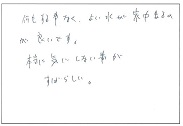 何も、る事なく、よい水が家中まるの
が良いです。
本当に気にしない事が
すばらしい。